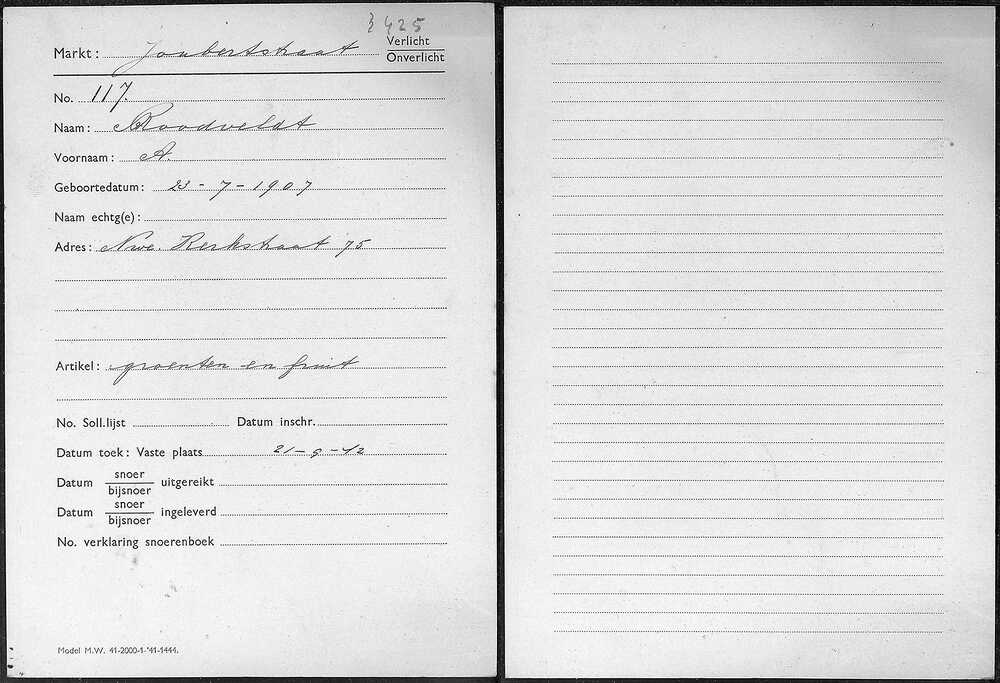 425
Markt: Joubertstraat Verlicht
Onverlicht
No. 117.
Naam: Roodveldt
Voornaam: A.
Geboortedatum: 23-7-1907
Naam echtg(e):
Adres: Nwe. Kerkstraat 75
Artikel: groenten en fruit
No. Soll.lijst Datum inschr.
Datum toek: Vaste plaats 21-9-42
Datum snoer uitgereikt
bijsnoer
Datum snoer ingeleverd
bijsnoer
No. verklaring snoerenboek
Model M.W. 41-2000-1-'41-1444.